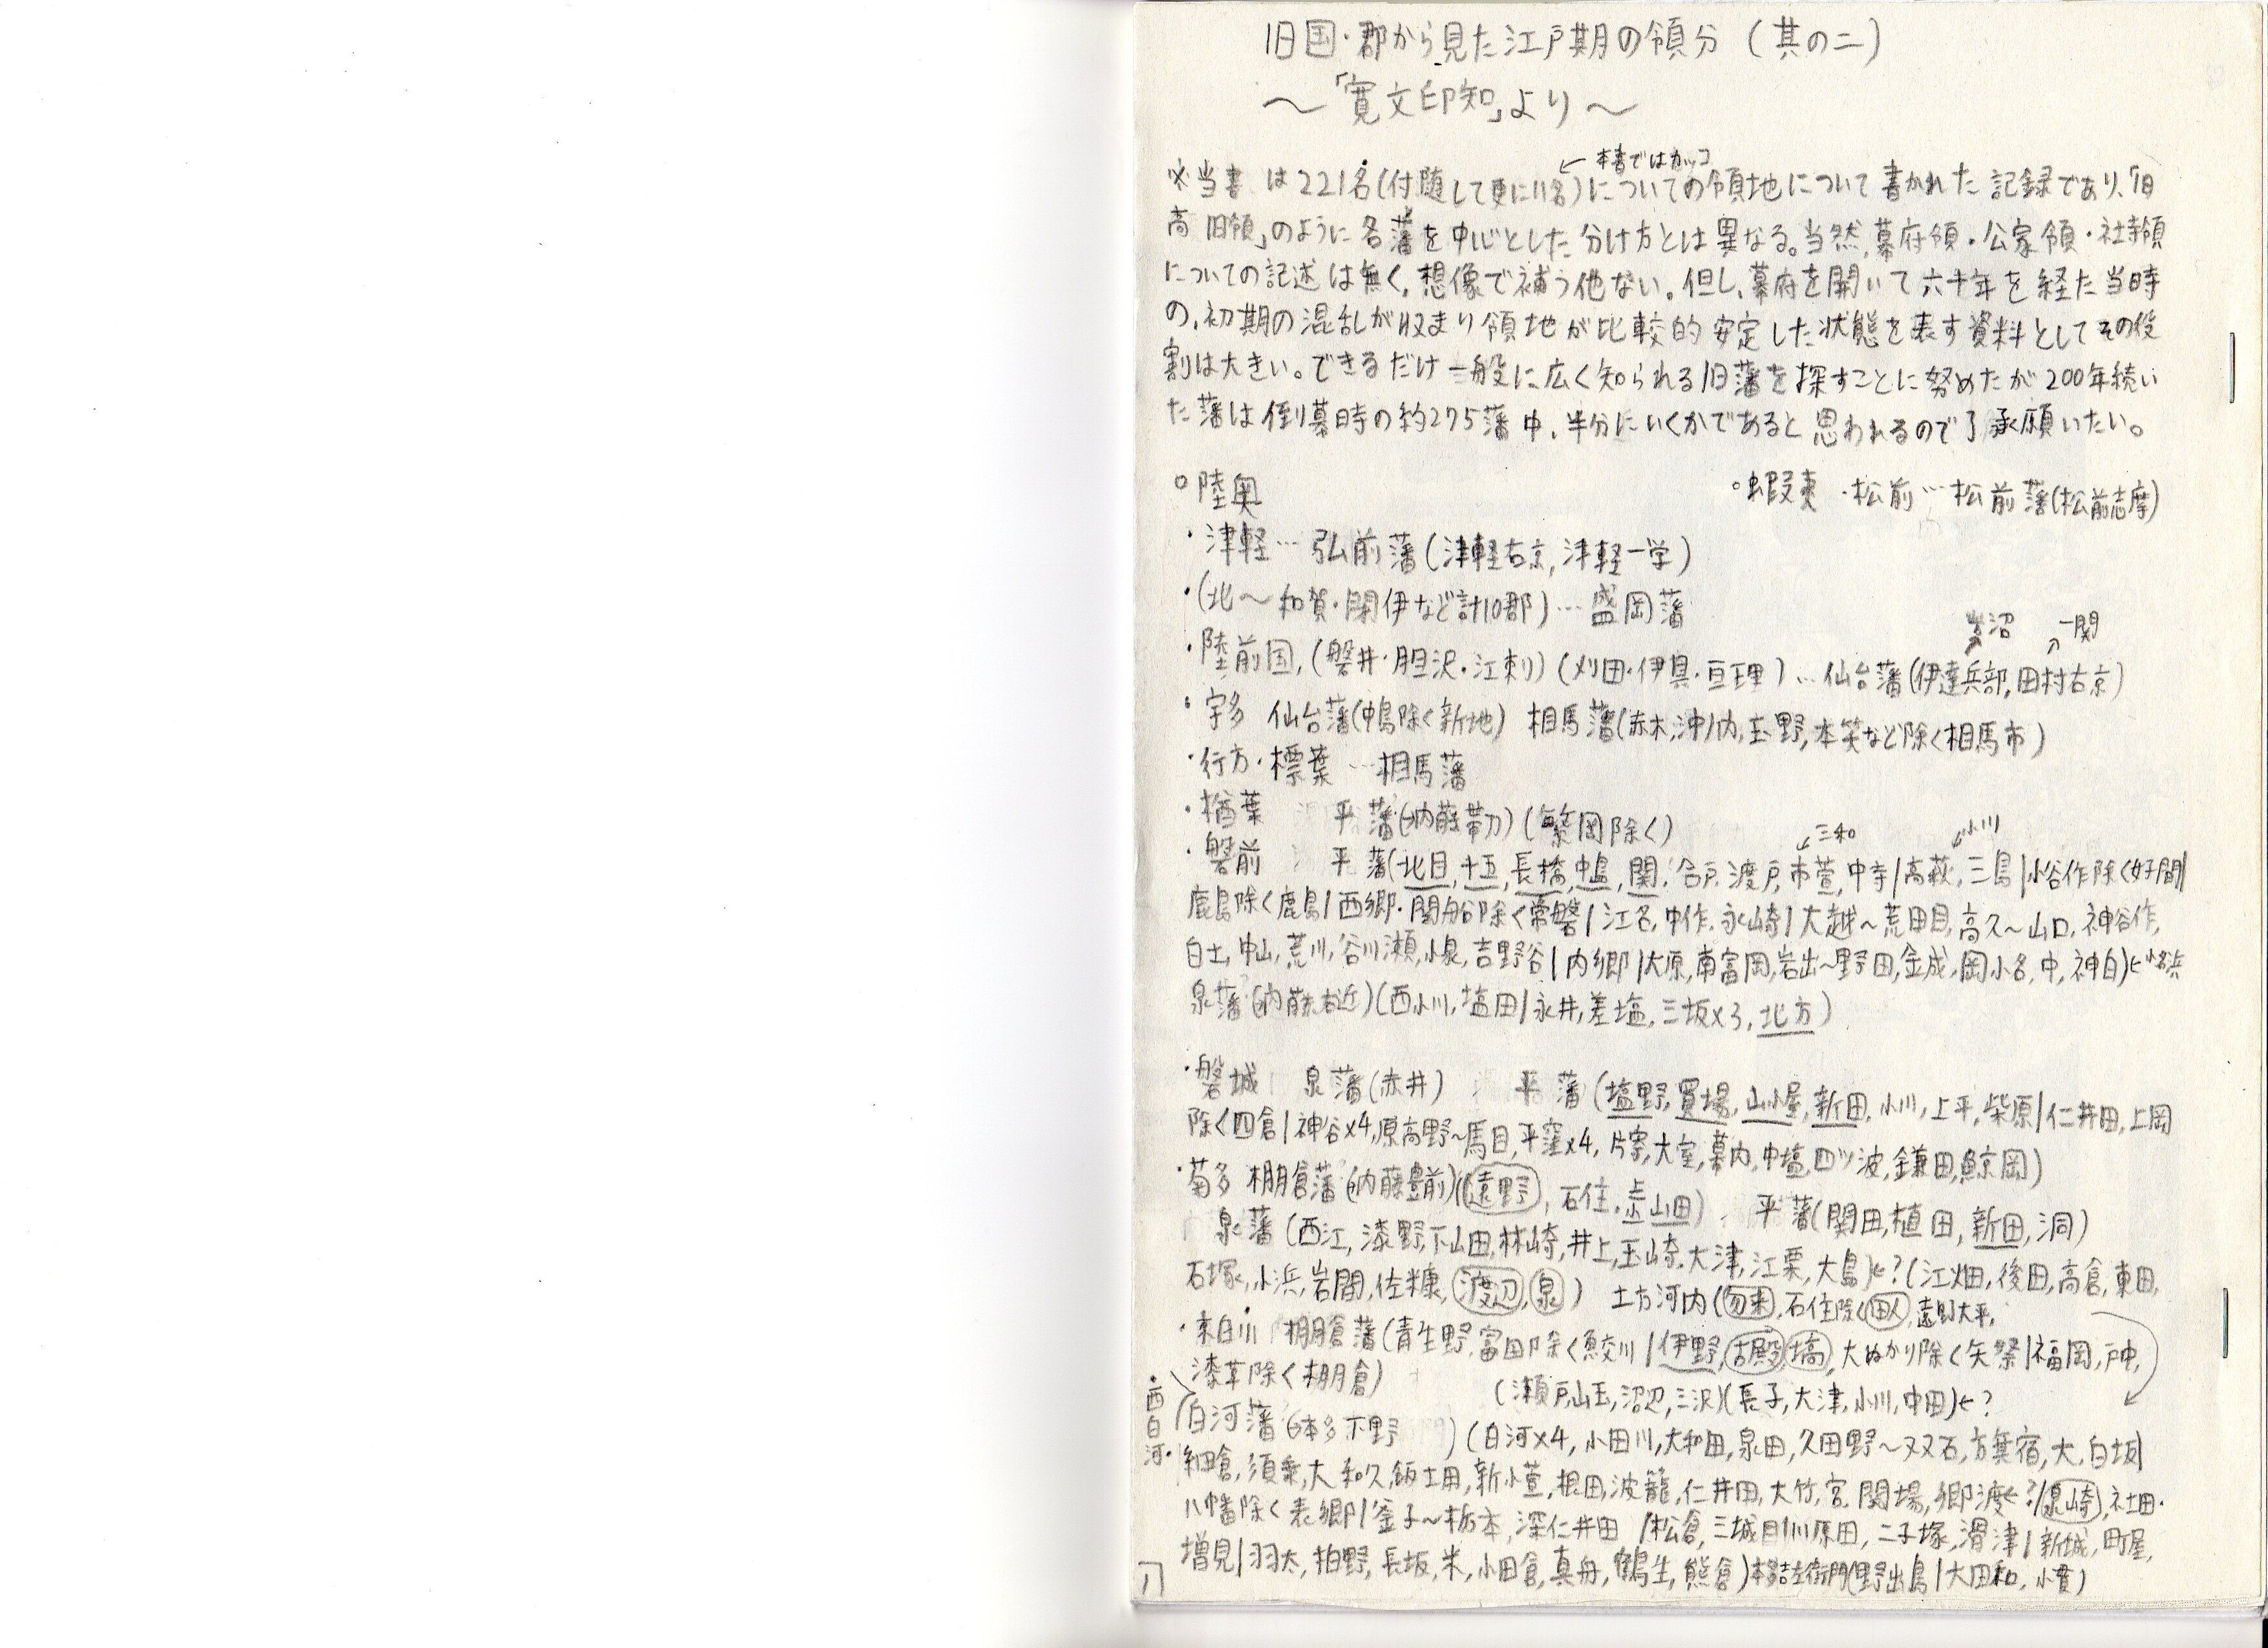 旧国・郡から見た江戸期の領分（其の二）
～「寛文印知」より～
←本書ではカッコ
※当書は221名(付随して更に11名)についての領地について書かれた記録であり、「旧
高旧領」のように各藩を中心とした分け方とは異なる。当然、幕府領・公家領・社寺領
についての記述は無く、想像で補う他ない。但し、幕府を開いて六十年を経た当時
の、初期の混乱が収まり領地が比較的安定した状態を表す資料としてその役
割は大きい。できるだけ一般に広く知られる旧藩を探すことに努めたが200年続い
た藩は倒幕時の約275藩中、半分にいくかであると思われるので了承願いたい。
○陸奥
○蝦夷 ・松前…松前藩(松前志摩)
・津軽…弘前藩(津軽右京,津軽一学)
・(北～和賀・閉伊など計10郡)…盛岡藩
岩沼 一関
・陸前国,(磐井・胆沢・江刺)(刈田・伊具・亘理)…仙台藩(伊達兵部,田村右京)
・宇多 仙台藩(中島除く新地) 相馬藩(赤木,沖ノ内,玉野,本笑など除く相馬市)
・行方・標葉…相馬藩
・楢葉 平藩(内藤帯刀)(繁岡除く)
三和 小川
・磐前 平藩(北目,十五,長橋,中島,関,合戸,渡戸,市萱,中寺|高萩,三島|小谷作除く好間|
鹿島除く鹿島|西郷・関船除く常磐|江名,中作,永崎|大越～荒田目,高久～山口,神谷作,
白土,中山,荒川,谷川瀬,小泉,吉野谷|内郷|大原,南富岡,岩出～野田,金成,岡小名,中,神白)←小名浜
泉藩(内藤右近)(西小川,塩田|永井,差塩,三坂×3,北方)
・磐城 泉藩(赤井) 平藩(塩野,置場,山小屋,新田,小川,上平,柴原|仁井田,上岡
除く四倉|神谷×4,原高野～馬目,平窪×4,片寄,大室,幕内,中塩,四ツ波,鎌田,鯨岡)
・菊多 棚倉藩(内藤豊前)(遠野,石住,上山田) 平藩(関田,植田,新田,洞)
泉藩(西江,漆野,下山田,林崎,井上,玉崎,大津,江栗,大島)←?(江畑,後田,高倉,東田,
石塚,小浜,岩間,佐糠,渡辺,泉) 土方河内(勿来,石住除く田人,遠野大平,
・東白川 棚倉藩(青生野,富田除く鮫川|伊野,古殿,塙,大ぬかり除く矢祭|福岡,戸中,
漆草除く棚倉) (瀬戸,山玉,沼辺,三沢)(長子,大津,小川,中田)←?
・西白河・
白河藩(本多下野)(白河×4,小田川,大和田,泉田,久田野～双石,方無宿,大,白坂|
細倉,須乗,大和久,飯土用,新小萱,根田,波籠,仁井田,大竹,宮,関場,郷渡←?|泉崎,社田・
八幡除く表郷|釜子～栃本,深仁井田|松倉,三城目|川原田,二子塚,滑津|新城,町屋,
増見|羽太,柏野,長坂,米,小田倉,真舟,鶴生,熊倉)本多吉左衛門(野出島|大田和,小貫)
八